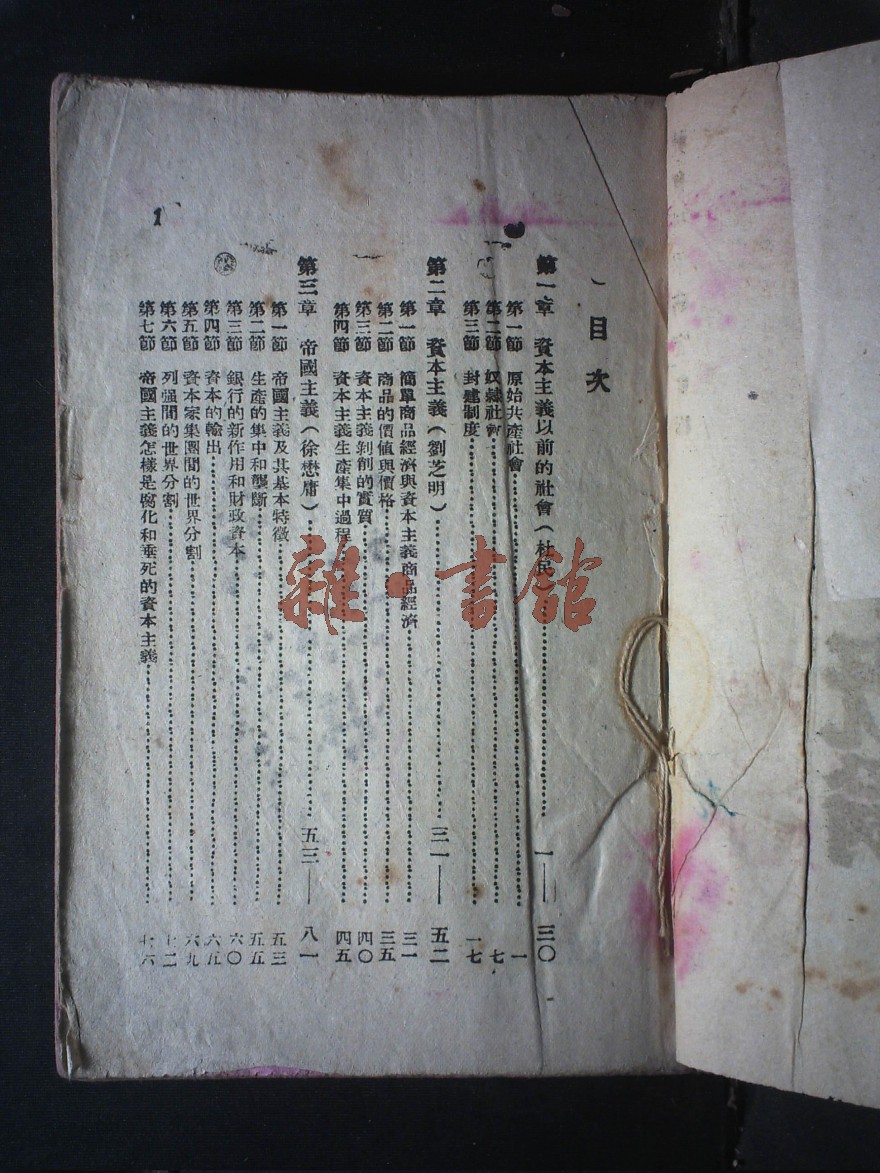 目次
第一章 資本主義以前的社會(杜民)……一——三〇
第一節 原始共產社會……一
第二節 奴隸社會……七
第三節 封建制度……一七
第二章 資本主義(劉芝明)……三一——五二
第一節 簡單商品經濟與資本主義商品經濟……三一
第二節 商品的價值與價格……三五
第三節 資本主義剝削的實質……四〇
第四節 資本主義生產集中過程……四五
第三章 帝國主義(徐懋庸)……五三——八一
第一節 帝國主義及其基本特徵……五三
第二節 生產的集中和壟斷……五五
第三節 銀行的新作用和財政資本……六〇
第四節 資本的輸出……六五
第五節 資本家集團間的世界分割……六九
第六節 列强間的世界分割……七二
第七節 帝國主義怎樣是腐化和垂死的資本主義……七六
1
雜·書館